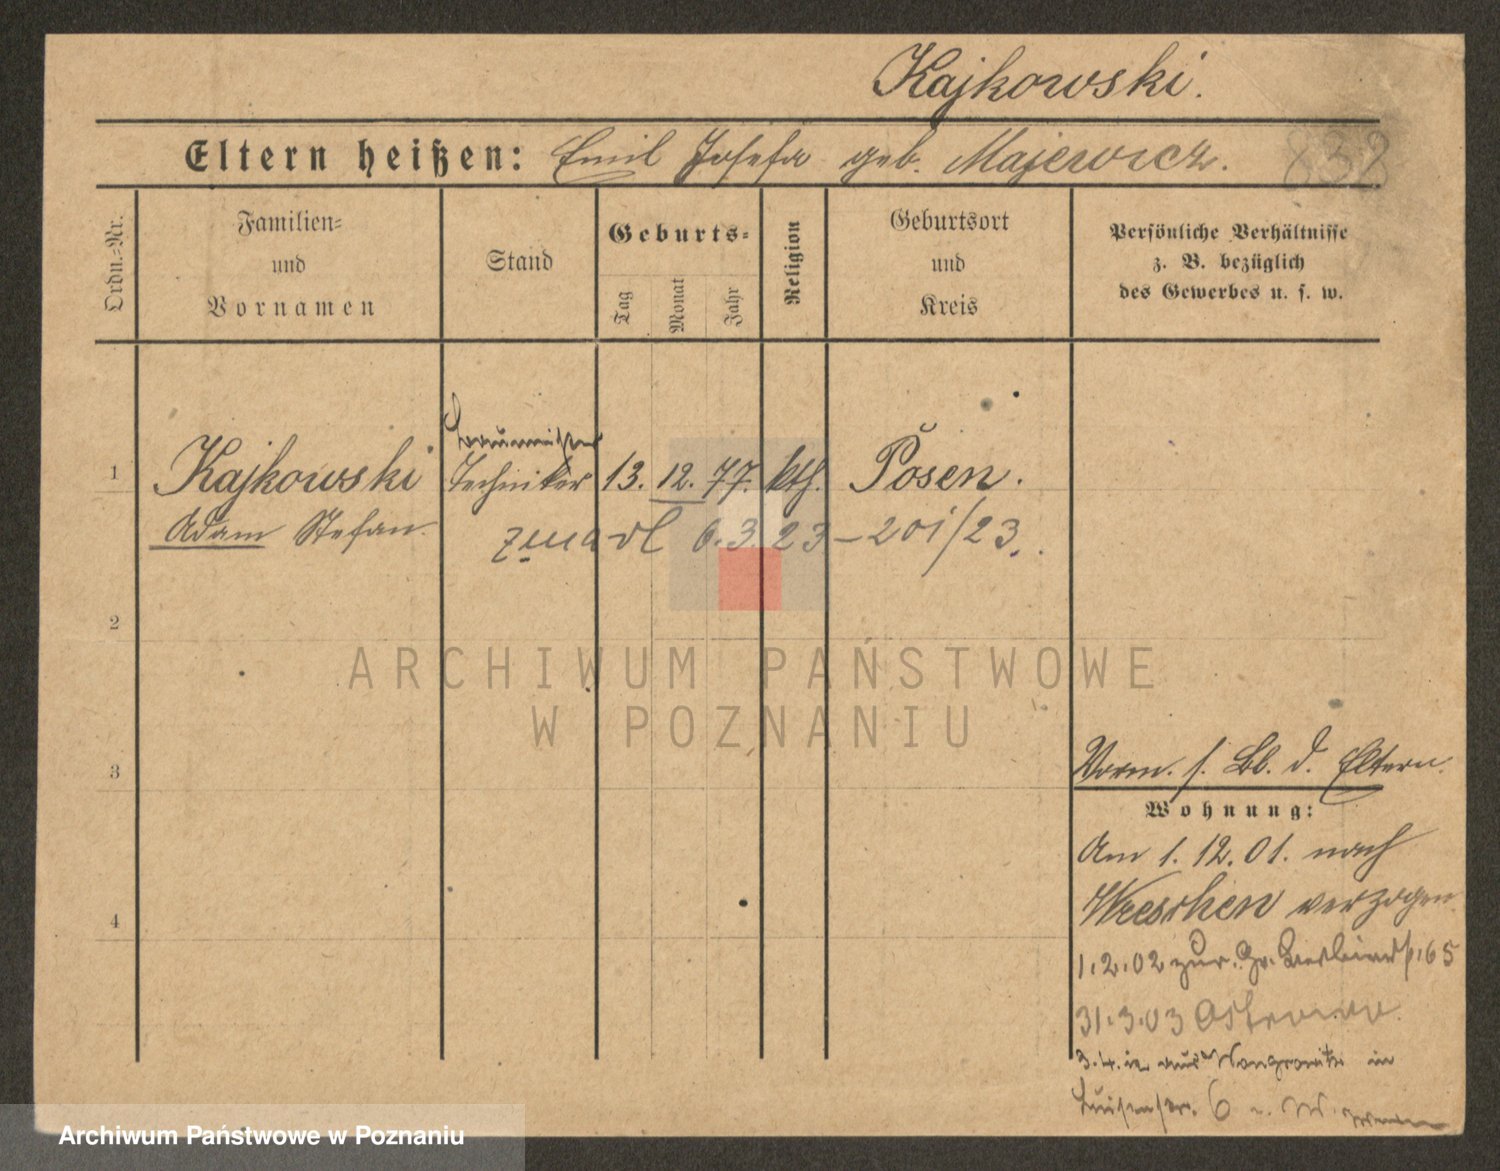 Kajkowski.
Eltern heißen: Emil Josefa geb. Majewicz.
838
Ordn.-Nr.
Familien-
und
Vornamen
Stand
Geburts-
Tag
Monat
Jahr
Religion
Geburtsort
und
Kreis
Persönliche Verhältnisse
z. B. bezüglich
des Gewerbes u. s. w.
1 Kajkowski Techniker 13. 12. 77. kth. Posen.
Adam Stefan.
6.3.23 – 201/23.
2
ARCHIWUM PAŃSTWOWE
W POZNANIU
3
Vorm. s. Bl. d. Eltern.
Wohnung:
Am 1. 12. 01. nach
Wreschen verzogen
4
1.2.02 zur. Gr. 65
31.3.03 Ostrowo.
3.4. aus Wongrowitz in
Luisenstr. 6
Archiwum Państwowe w Poznaniu